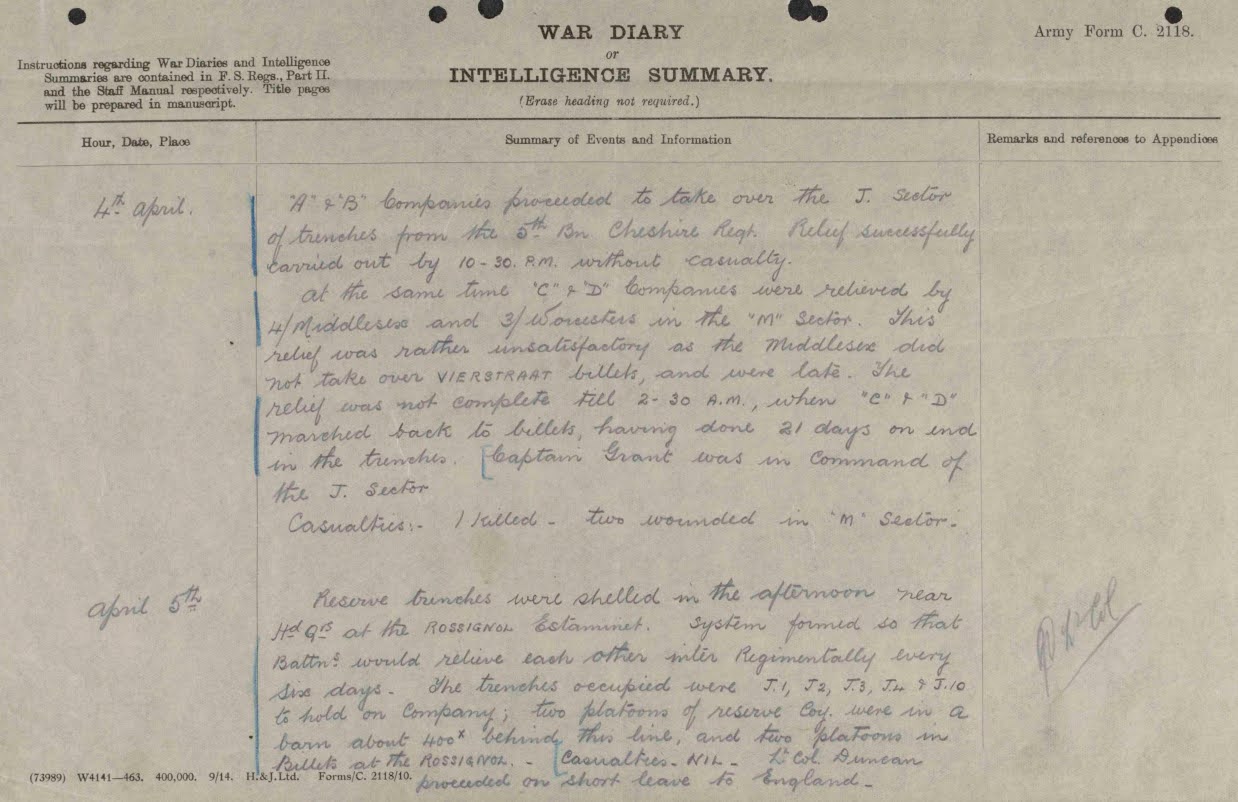 WAR DIARY
or
INTELLIGENCE SUMMARY.
(Erase heading not required.)
Army Form C. 2118.
Instructions regarding War Diaries and Intelligence
Summaries are contained in F. S. Regs., Part II.
and the Staff Manual respectively. Title pages
will be prepared in manuscript.
Hour, Date, Place
Summary of Events and Information
Remarks and references to Appendices
4th April.
"A" & "B" Companies proceeded to take over the J. Sector
of trenches from the 5th Bn Cheshire Regt. Relief successfully
carried out by 10-30. P.M. without casualty.
At the same time "C" & "D" Companies were relieved by
4/Middlesex and 3/Worcesters in the "M" Sector. This
relief was rather unsatisfactory as the Middlesex did
not take over VIERSTRAAT billets, and were late. The
relief was not complete till 2-30 A.M., when "C" & "D"
marched back to billets, having done 21 days on end
in the trenches. [Captain Grant was in command of
the J. Sector
Casualties:- 1 killed - two wounded in "M" Sector.
April 5th
Reserve trenches were shelled in the afternoon near
Hd Qrs at the ROSSIGNOL Estaminet. System formed so that
Battns would relieve each other inter Regimentally every
six days. The trenches occupied were J.1, J2, J.3, J4 & J.10
to hold on Company; two platoons of reserve Coy. were in a
barn about 400x behind this line, and two platoons in
Billets at the ROSSIGNOL. - [Casualties - NIL - Lt Col. Duncan
proceeded on short leave to England -
Lt Col
(73989) W4141—463. 400,000. 9/14. H.&J.Ltd. Forms/C. 2118/10.